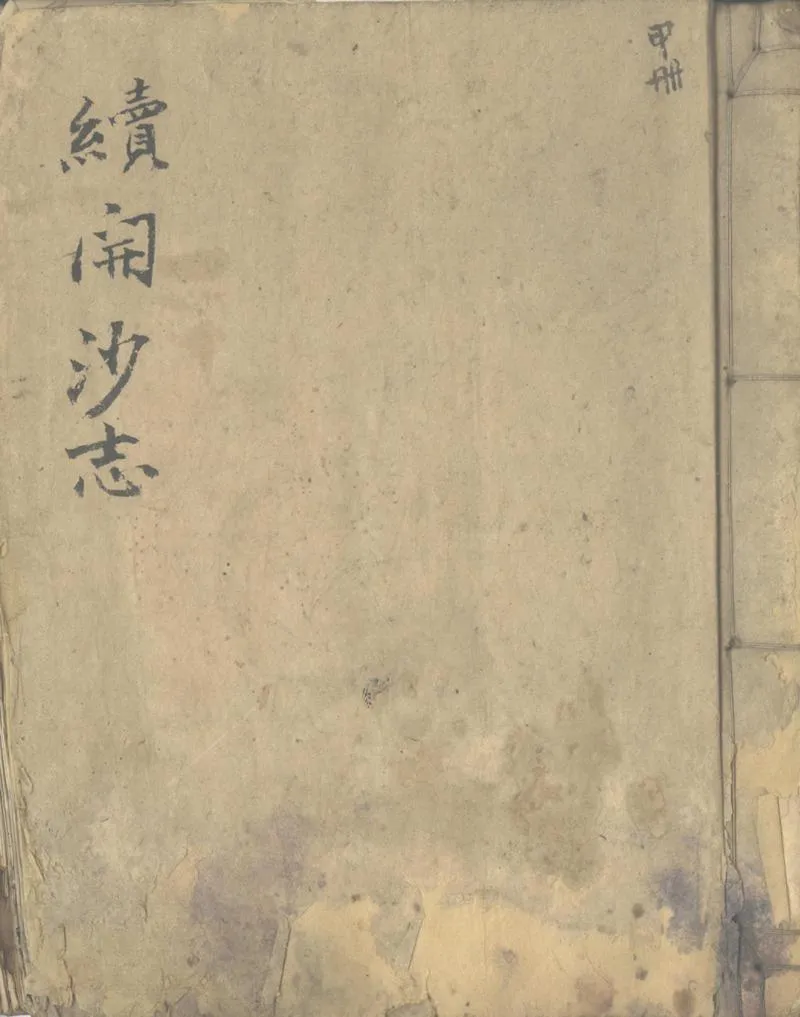 甲册
續開沙志